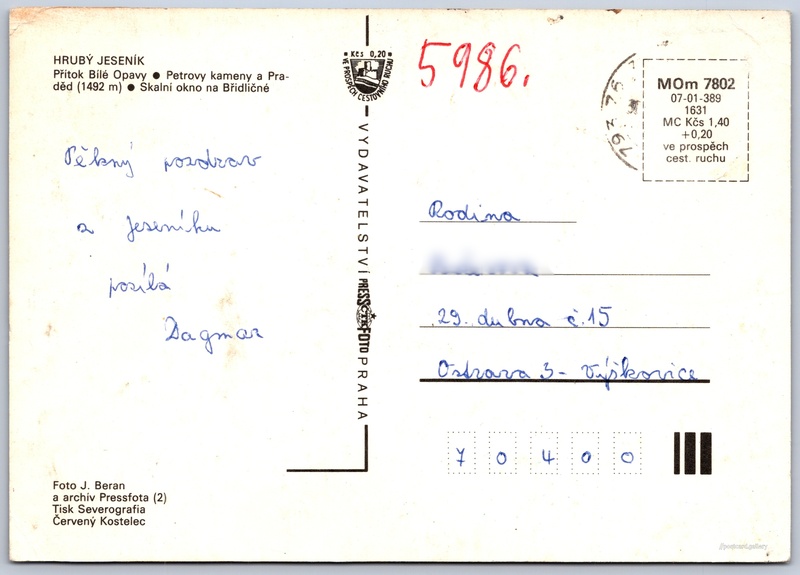 HRUBÝ JESENÍK
Přítok Bílé Opavy ● Petrovy kameny a Pra-
děd (1492 m) ● Skalní okno na Břidličné
Kčs 0,20
VE PROSPĚCH CESTOVNÍHO RUCHU
5986.
793 76
MOm 7802
07-01-389
1631
MC Kčs 1,40
+0,20
ve prospěch
cest. ruchu
Pěkný pozdrav
z Jeseníku
posílá
Dagmar
VYDAVATELSTVÍ PRESSFOTO PRAHA
ČTK
Rodina
29. dubna č. 15
Ostrava 3 - Výškovice
70400
Foto J. Beran
a archív Pressfota (2)
Tisk Severografia
Červený Kostelec